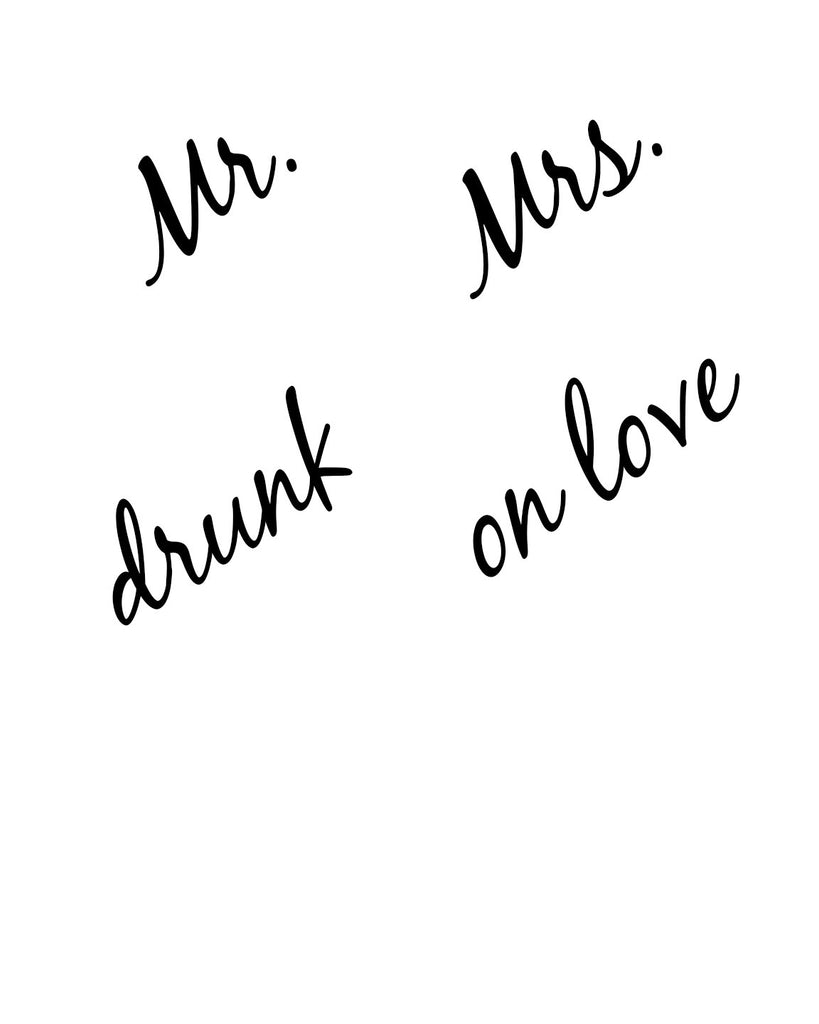 Mr. Mrs.
drunk on love